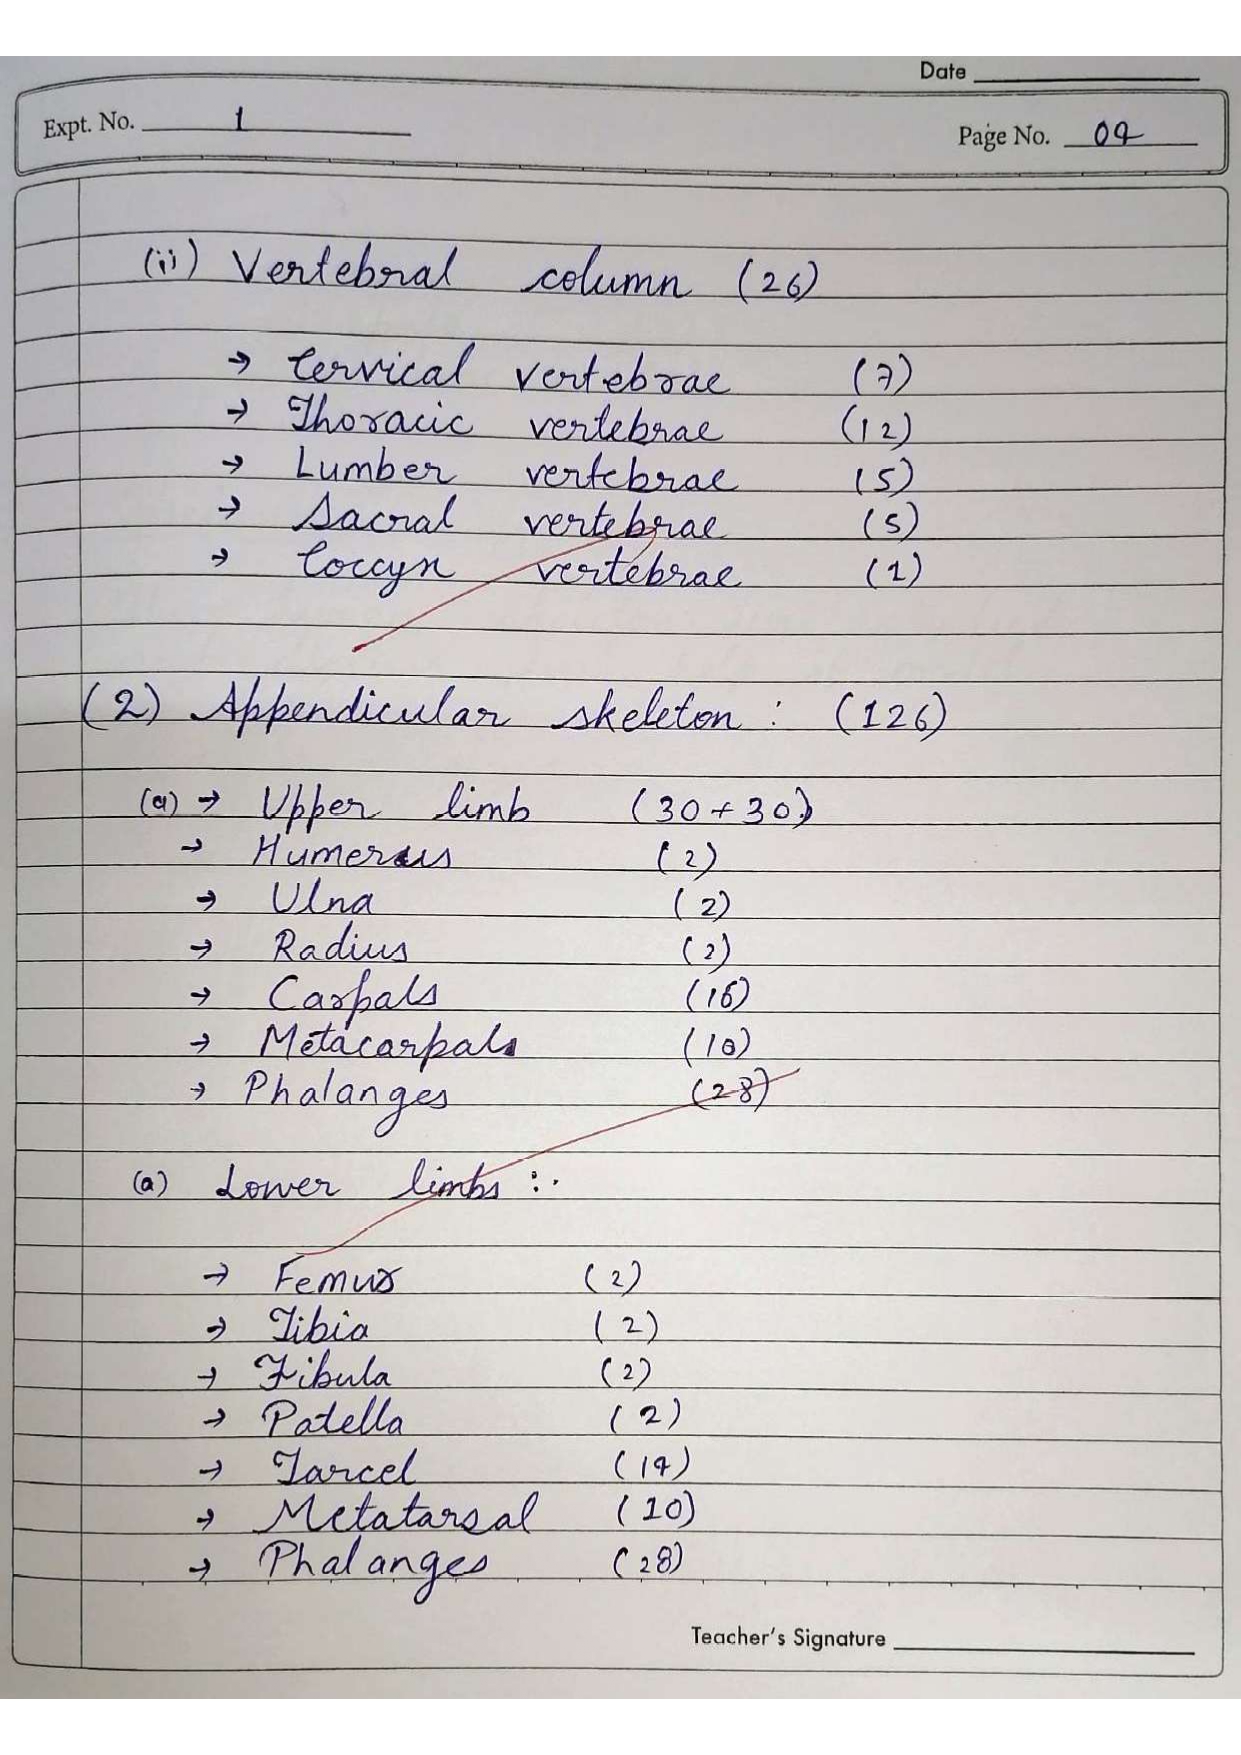 Date
Expt. No. 1
Page No. 04
(ii) Vertebral column (26)
→ Cervical vertebrae (7)
→ Thoracic vertebrae (12)
→ Lumber vertebrae (5)
→ Sacral vertebrae (5)
→ Coccyx vertebrae (1)
(2) Appendicular skeleton : (126)
(a) → Upper limb (30+30)
→ Humerus (2)
→ Ulna (2)
→ Radius (2)
→ Carpals (16)
→ Metacarpals (10)
→ Phalanges (28)
(a) Lower limbs :.
→ Femur (2)
→ Tibia (2)
→ Fibula (2)
→ Patella (2)
→ Tarcel (14)
→ Metatarsal (10)
→ Phalanges (28)
Teacher's Signature